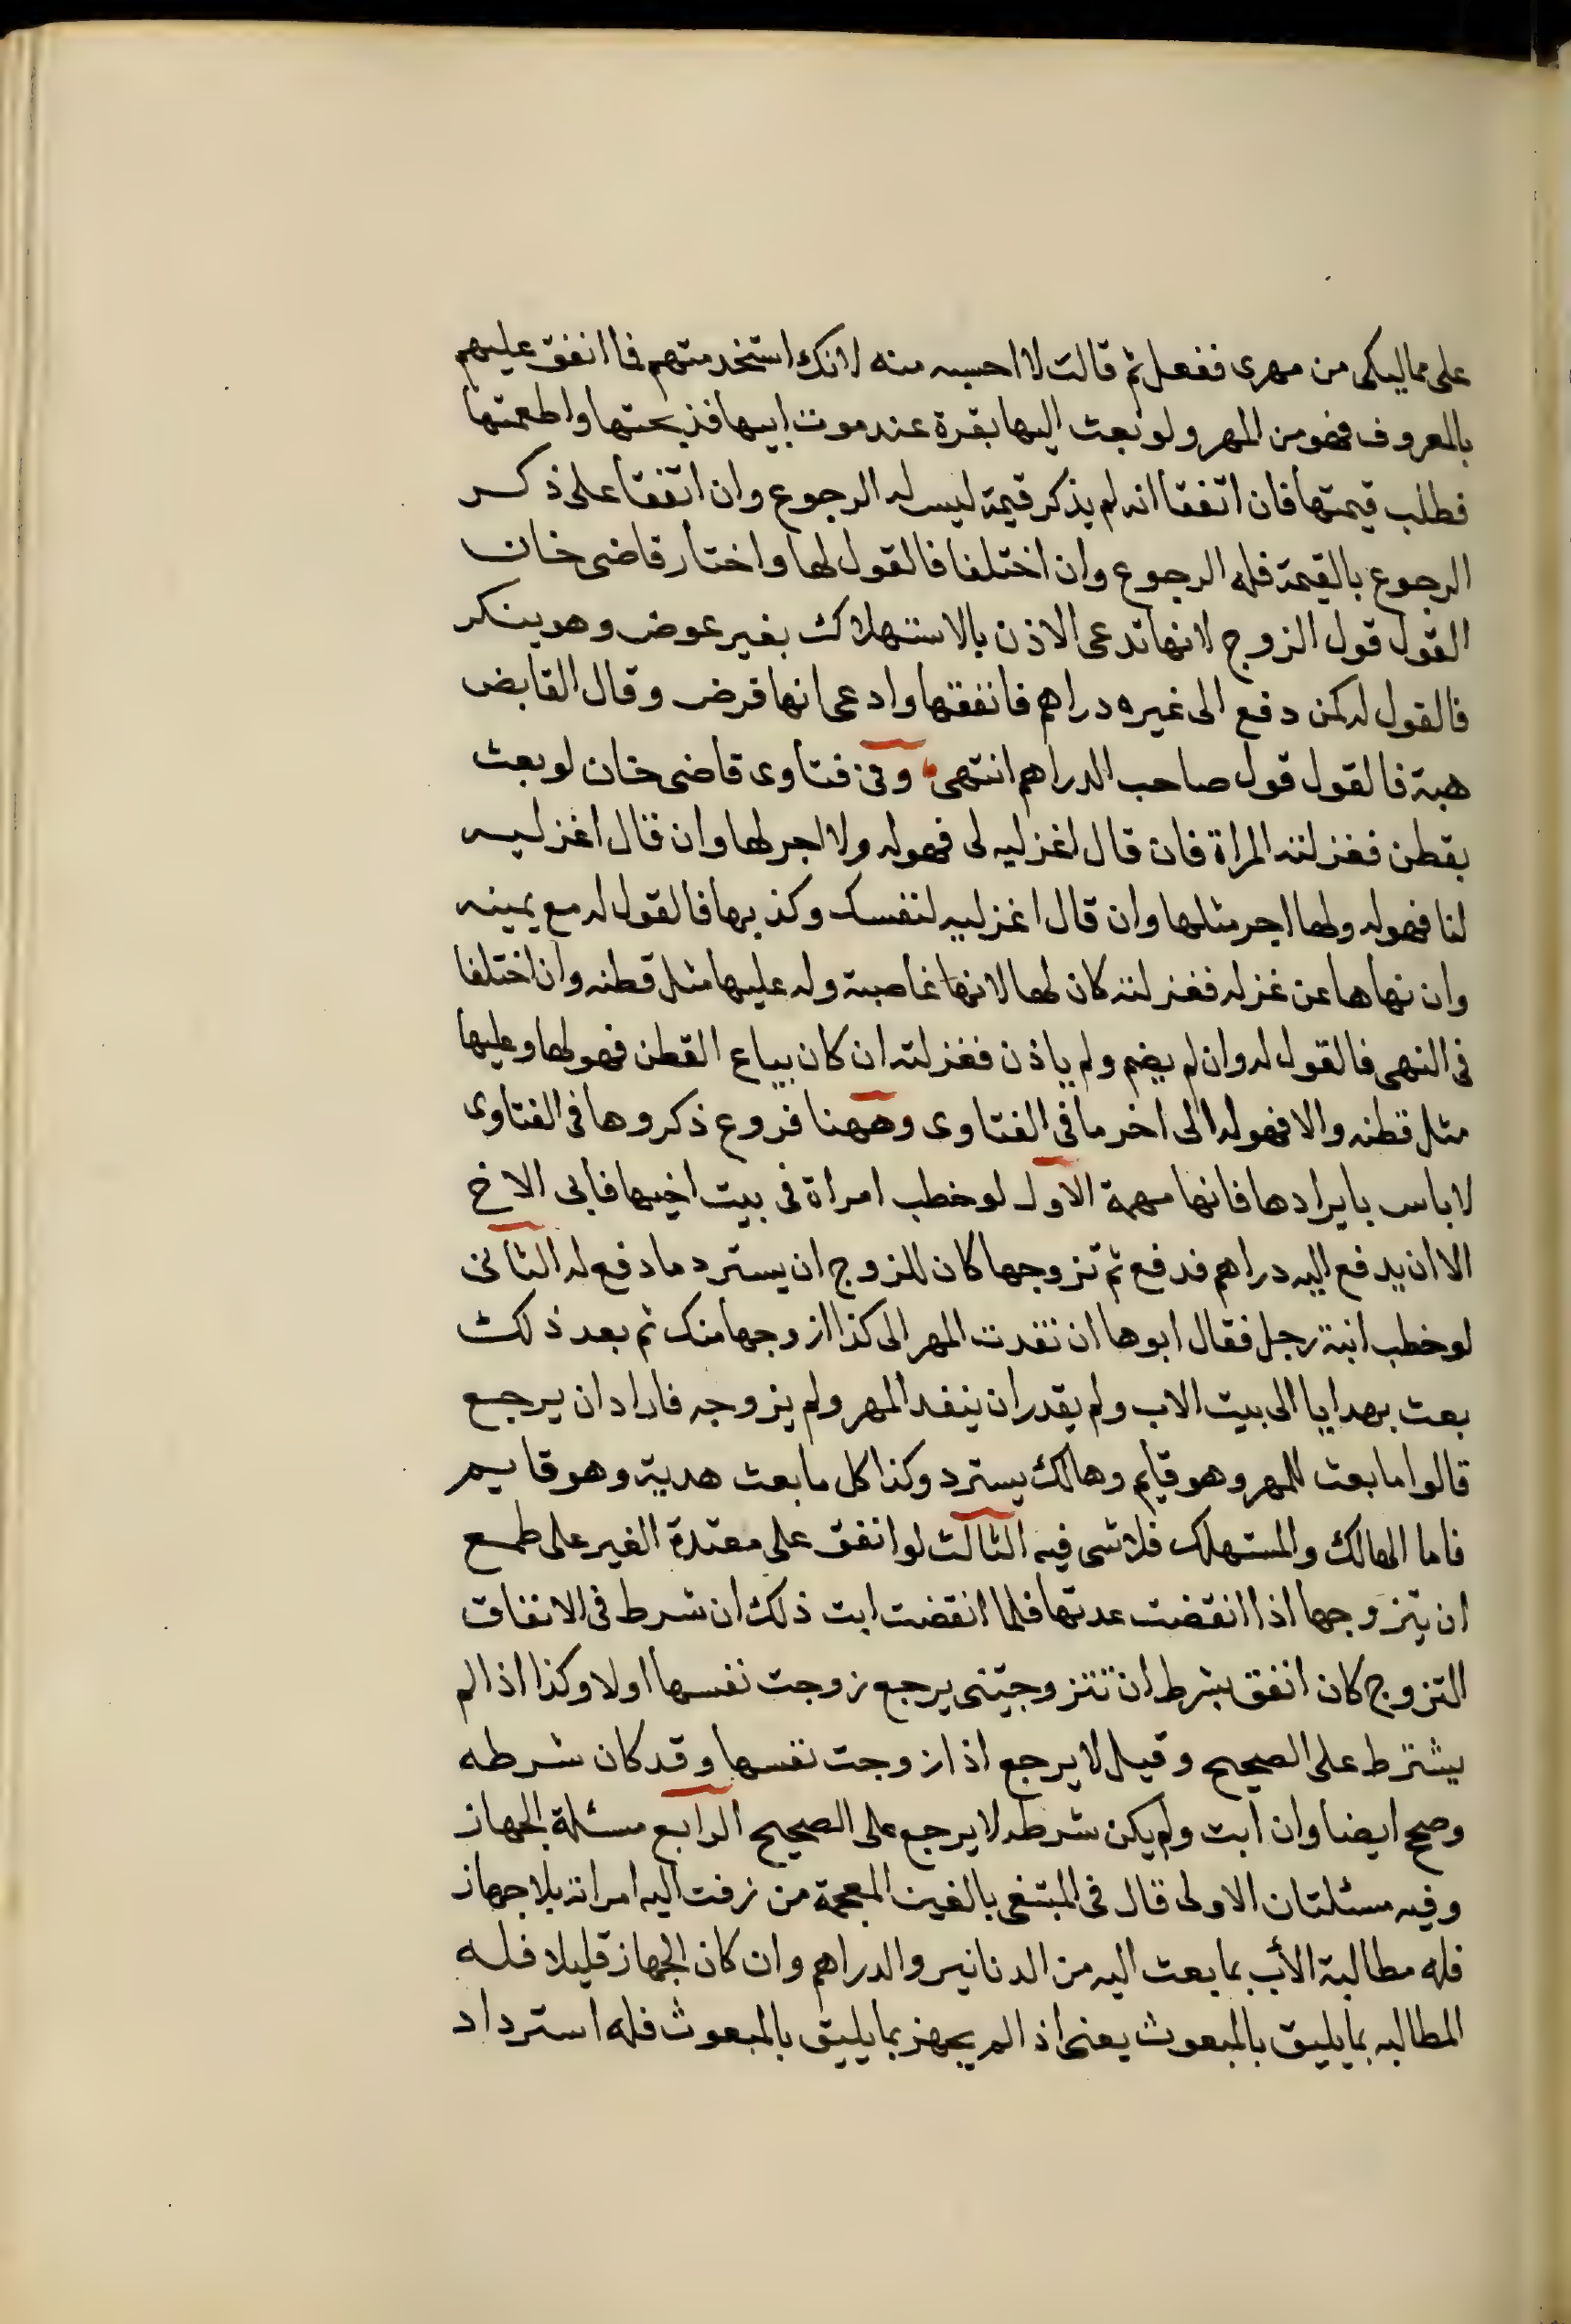 على مماليكى من مهرى ففعل ثم قالت لا احسبه منه لانك استخدمتهم فما انفق عليهم
بالمعروف فهو من المهر ولو بعث اليها بقرة عند موت ابيها فذبحتها واطعمتها
فطلب قيمتها فان اتفقا انه لم يذكر قيمة ليس له الرجوع وان اتفقا على ذكر
الرجوع بالقيمة فله الرجوع وان اختلفا فالقول لها واختار قاضى خان
القول قول الزوج لانها تدعى الاذن بالاستهلاك بغير عوض وهو ينكر
فالقول له كمن دفع الى غيره دراهم فانفقها وادعى انها قرض وقال القابض
هبة فالقول قول صاحب الدراهم انتهى وفى فتاوى قاضى خان لو بعث
بقطن فغزلته المراة فان قال اغزليه لى فهو له ولا اجر لها وان قال اغزليه
لنا فهو له ولها اجر مثلها وان قال اغزليه لنفسك وكذبها فالقول له مع يمينه
وان نهاها عن غزله فغزلته كان لها لانها غاصبة وله عليها مثل قطنه وان اختلفا
فى النهى فالقول له وان لم ينهه ولم ياذن فغزلته ان كان بياع القطن فهو لها وعليها
مثل قطنه والا فهو له الى اخر ما فى الفتاوى وههنا فروع ذكروها فى الفتاوى
لا باس بايرادها فانها مهمة الاول لو خطب امراة فى بيت اخيها فابى الاخ
الا ان يدفع اليه دراهم فدفع ثم تزوجها كان للزوج ان يسترد ما دفع له الثانى
لو خطب ابنة رجل فقال ابوها ان نقدت المهر الى كذا ازوجها منك ثم بعد ذلك
بعث بهدايا الى بيت الاب ولم يقدر ان ينقد المهر ولم يزوجه فاراد ان يرجع
قالوا ما بعث للمهر وهو قايم وهالك يسترد وكذا كل ما بعث هدية وهو قايم
فاما الهالك والمستهلك فلا شى فيه الثالث لو انفق على معتدة الغير على طمع
ان يتزوجها اذا انقضت عدتها فلما انقضت ابت ذلك ان شرط فى الانفاق
التزوج كان انفق بشرط ان تتزوجينى يرجع زوجت نفسها اولا وكذا اذا لم
يشترط على الصحيح وقيل لا يرجع اذا زوجت نفسها وقد كان شرطه
وصح ايضا وان ابت ولم يكن شرطه لا يرجع على الصحيح الرابع مسئلة الجهاز
وفيه مسئلتان الاولى قال فى المبتغى بالغين المعجمة من زفت اليه امراته بلا جهاز
فله مطالبة الأب بما بعث اليه من الدنانير والدراهم وان كان الجهاز قليلا فله
المطالبه بما يليق بالمبعوث يعنى اذا لم يجهز بما يليق بالمبعوث فله استرداد